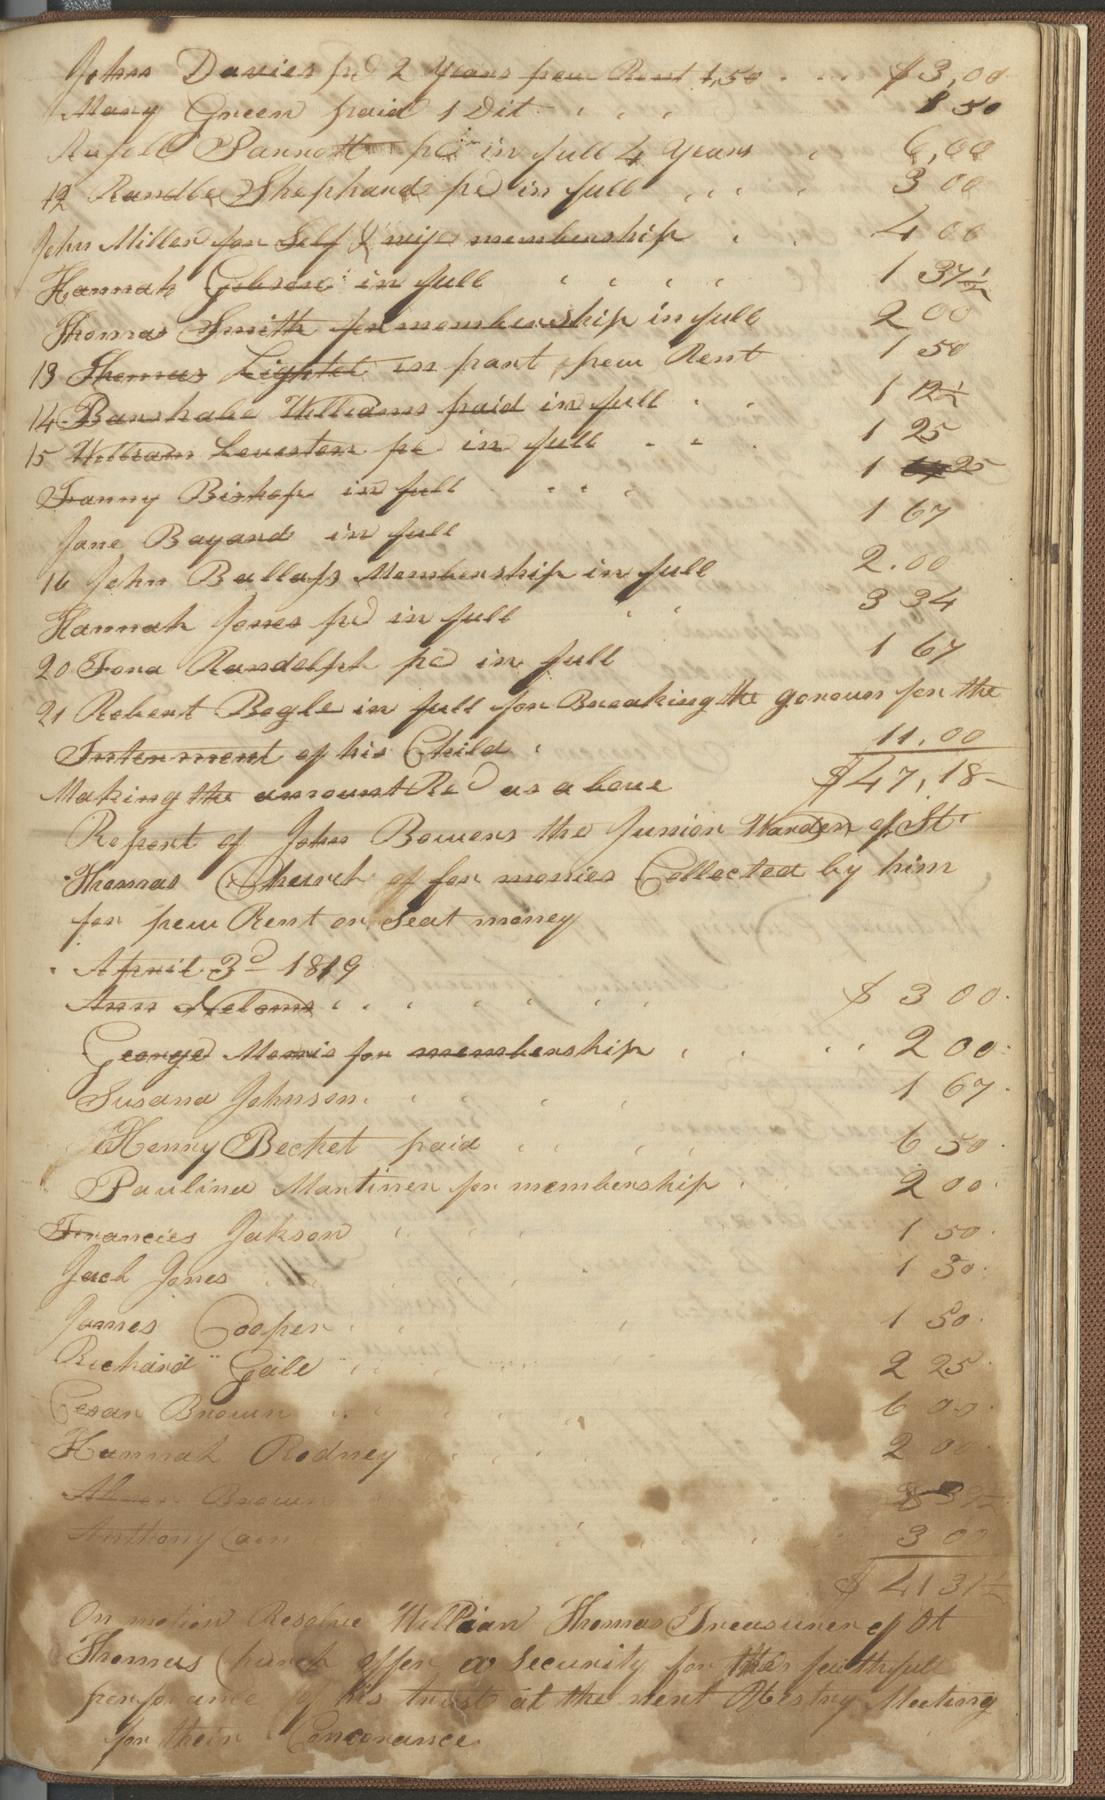 John Davies pd 2 Years pew Rent 1,50 . . . $3,00
Mary Green paid 1 Dit . . . 1 50
Pd in full 4 Years . 6,00
12 Randle Shephard pd in full . . . 3 00
John Miller for Self & wife membership . . 4 00
Hannah Gibson in full . . . . 1 37½
Thomas Smith for membership in full 2 00
13 Thomas Lightel in part pew Rent 1 50
14 Barshabe Williams paid in full . . 1 12½
15 William Leveston pd in full . . 1 25
Fanny Bishop in full . . . 1 25
Jane Bayard in full 1 67
16 John Ballass Membership in full 2.00
Hannah Jones pd in full . . 3 34
20 Randolph pd in full 1 67
21 Robert Bogle in full for Breaking the gonoun for the
Interment of his Child . 11.00
Making the amount Recd as above $47,18
Report of John Bowers the Junior Warden of St
Thomas Church of for monies Collected by him
for pew Rent or Seat money
April 3d 1819
Ann Nelams . . . . . . . $ 3 00
George Morris for membership . . . . 2 00
Susana Johnson . . . . . 1 67
Henry Becket paid . . . . 6 50
Paulina Martinen for membership . 2 00
Francies Jakson . . . 1 50
Jack Jones . . . 1 50
James Cooper . . . 1 50
Richard Gaile . . . 2 25
Cesar Brown . . . 6 00
Hannah Rodney . . . 2 00
Brown
Anthony Cain 3 00
$ 41 31½
On motion Resolve William Thomas Treasurer of St
Thomas Church offer a Security for the faithfull
performance of his trust at the next Vestry Meeting
for their Concorance